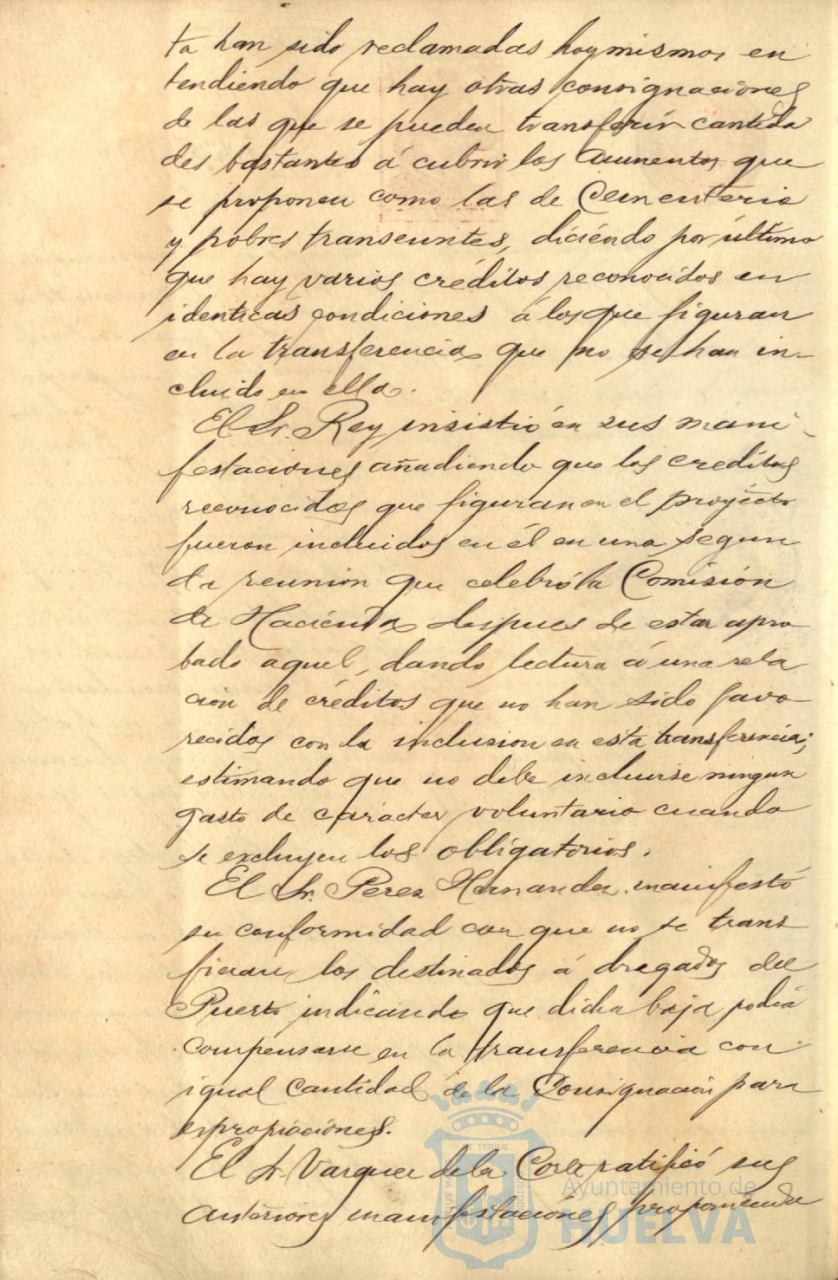 ta han sido reclamadas hoy mismos en
tendiendo que hay otras consignaciones
de las que se pueden transferir cantida
des bastantes á cubrir los aumentos que
se proponen como las de Cementerio
y pobres transeuntes, diciéndo por último
que hay varios créditos reconocidos en
identicas condiciones á los que figuran
en la transferencia que no se han in-
cluido en ella.
El Sr. Rey insistió en sus mani-
festaciones añadiendo que los creditos
reconocidos que figuran en el proyécto
fueron incluidos en él en una segun
da reunión que celebró la Comisión
de Haciénda despues de estar apro
bado aquel, dando lectura á una rela
ción de créditos que no han sido favo
recidos con la inclusion en esta transferencia;
estimando que no debe incluirse ningun
gasto de carácter voluntario cuando
se excluyen los obligatorios.
El Sr. Perez Hernandez manifestó
su conformidad con que no se trans
fieran los destinados á dragados del
Puerto indicando que dicha baja podia
compensarse en la transferencia con
igual cantidad de la Consignación para
expropiaciónes.
El Sr. Vazquez de la Corte ratificó sus
anteriores manifestaciónes proponiendo
Ayuntamiento de
HUELVA